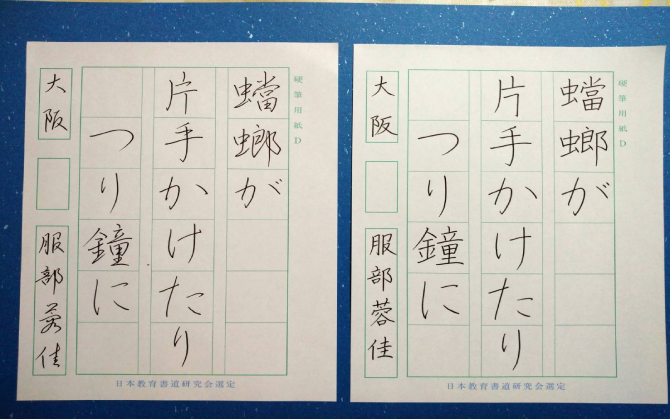 硬筆用紙D
蟷螂が
片手かけたり
つり鐘に
大阪
服部蓉佳
日本教育書道研究会選定
硬筆用紙D
蟷螂が
片手かけたり
つり鐘に
大阪
服部蓉佳
日本教育書道研究会選定